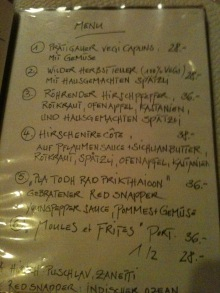 MENU
① PRÄTIGAUER VEGI CAPUNS 28.-
MIT GEMÜSE
② WILDER HERBSTTELLER (100% VEGI)
MIT HAUSGEMACHTEN SPÄTZLI
③ RÖHRENDER HIRSCHPFEFFER 36.-
ROTKRAUT, OFENAPFEL, KASTANIEN,
UND HAUSGEMACHTEN SPÄTZLI
④ HIRSCHENTRECÔTE 38.-
AUF PFLAUMENSAUCE + SICHUANBUTTER,
ROTKRAUT, SPÄTZLI, OFENAPFEL, KASTANIEN
PLA TODH RAD PRIKTHAIOON" 36.-
GEBRATENER RED SNAPPER
SAUCE, POMMES + GEMÜSE
MOULES et FRITES PORT. 36.-
1/2 28.-
PUSCHLAV, ZANETTI
RED SNAPPER: INDISCHER OZEAN